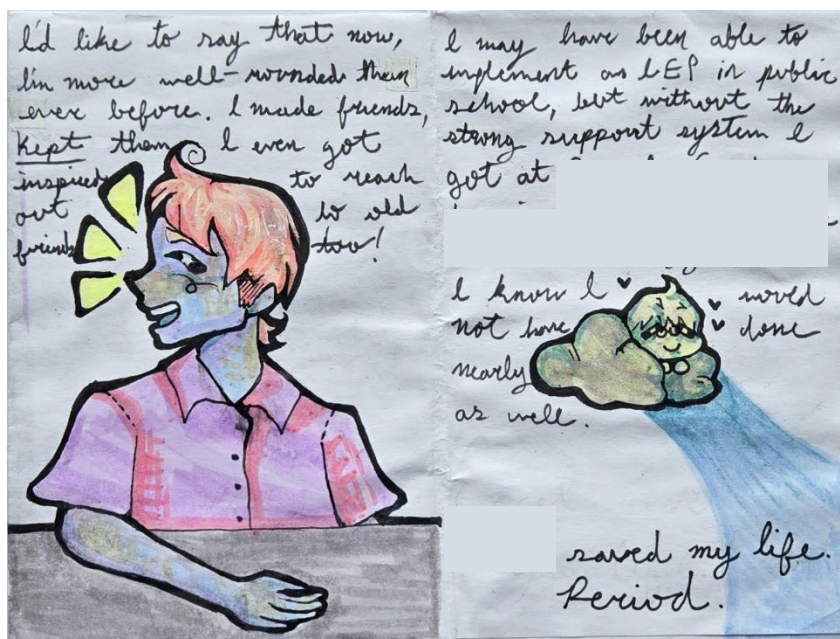 I'd like to say that now,
I'm more well-rounded than
ever before. I made friends,
kept them, I even got
inspired to reach
out to old
friends too!
I may have been able to
implement an IEP in public
school, but without the
strong support system I
got at
I know I would
not have done
nearly
as well.
saved my life.
Period.